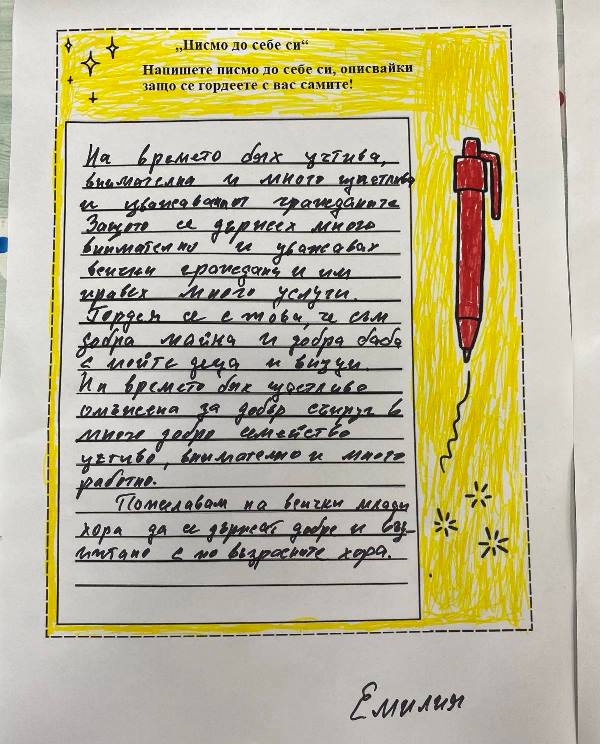 „Писмо до себе си“
Напишете писмо до себе си, описвайки
защо се гордеете с вас самите!
На времето бях учтива,
внимателна и много щастлива
и уважавант гражданите
Защото се държех много
внимателно и уважавах
всички граждани и им
правех много услуги.
Гордея се с това, че съм
добра майка и добра баба
с мойте деца и внуци.
На времето бях щастливо
омъжена за добър съпруг в
много добро семейство
учтиво, внимателно и много
работно.
Пожелавам на всички млади
хора да се държат добре и въз-
питано с по възрасните хора.
Емилия